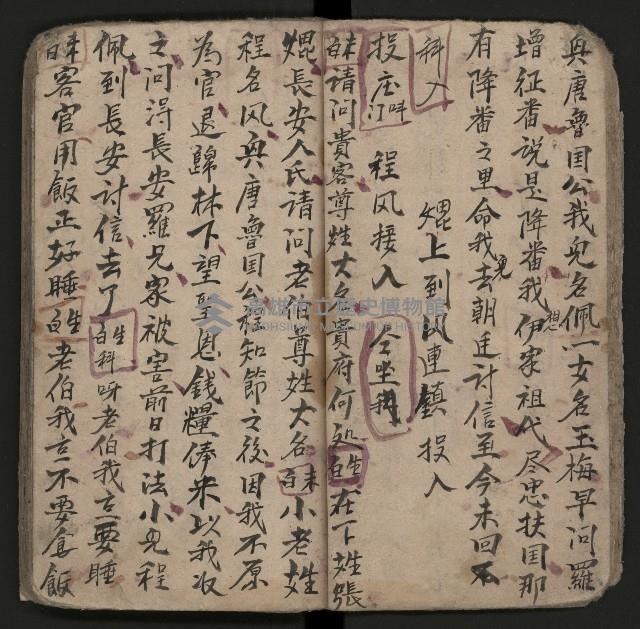 兴唐魯国公我兒名佩一女名玉梅早问羅
增征番说是降番我想伊家祖代尽忠扶国那
有降番之里命我兒去朝廷讨信至今未回不
科入
焜上到风連鎮投入
投庄 门叫 程风接入 仝坐科
白末请问貴客尊姓大名貴府何処白生在下姓張
焜長安人氏請问老伯尊姓大名白末小老姓
程名风兴唐魯国公程知節之後因我不原
為官退歸林下望聖恩錢糧俸米以我収
之问得長安羅兄家被害前日打法小兒程
佩到長安讨信去了白生科呀老伯我言要睡
白末客官用飯正好睡白生老伯我言不要食飯
高雄市立歷史博物館
KAOHSIUNG MUSEUM OF HISTORY